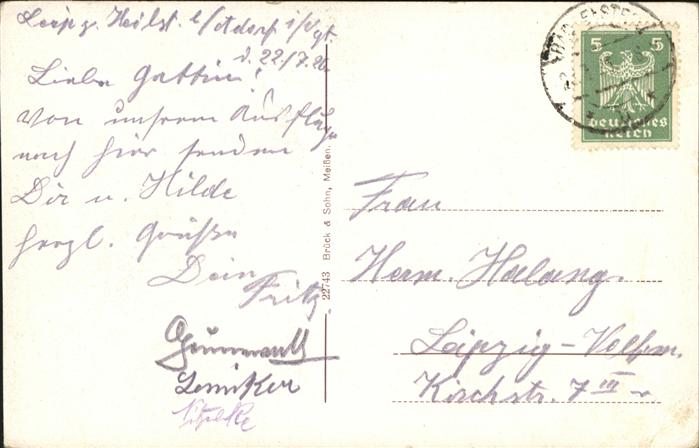 Leipz. Heilst. b/Adorf i/Vgt.
d. 22/7.26
Liebe Gattin!
Von unserem Ausfluge
nach hier senden
Dir u. Hilde
herzl. Grüße
Dein
Fritz
22743 Brück & Sohn, Meißen.
5 5
Deutsches
Reich
Frau
Herm. Halang.
Leipzig-Volkm.
Kirchstr. 7 III